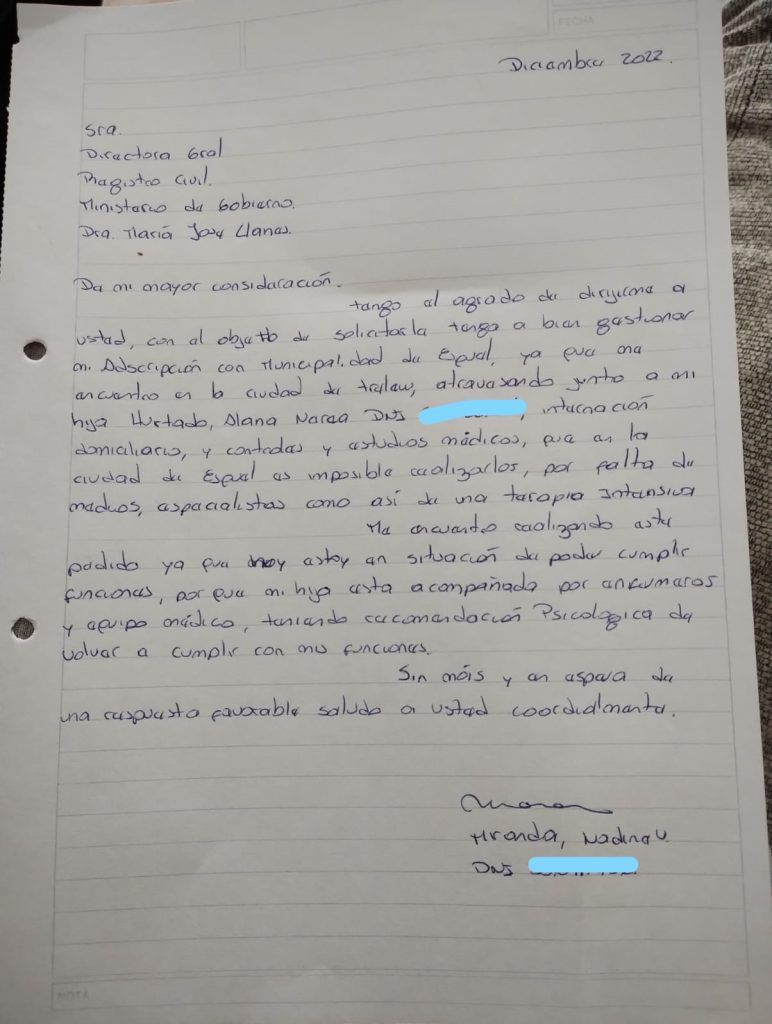 FECHA
Diciembre 2022.
Sra.
Directora Gral
Registro Civil.
Ministerio de Gobierno.
Dra. María José Llanes.
De mi mayor consideración.
tengo el agrado de dirigirme a
usted, con el objeto de solicitarle tenga a bien gestionar
mi Adscripción con Municipalidad de Esquel, ya que me
encuentro en la ciudad de trelew, atravesando junto a mi
hija Hurtado, Alana Narea DNI , internación
domiciliaria, y controles y estudios médicos, que en la
ciudad de Esquel es imposible realizarlos, por falta de
medicos, especialistas como así de una terapia Intensiva
Me encuentro realizando este
pedido ya que hoy estoy en situación de poder cumplir
funciones, por que mi hija esta acompañada por enfermeros
y equipo médico, teniendo recomendación Psicologica de
volver a cumplir con mis funciones.
Sin más y en espera de
una respuesta favorable saludo a usted coordialmente.
Miranda, Nadina V.
DNI
NOTA